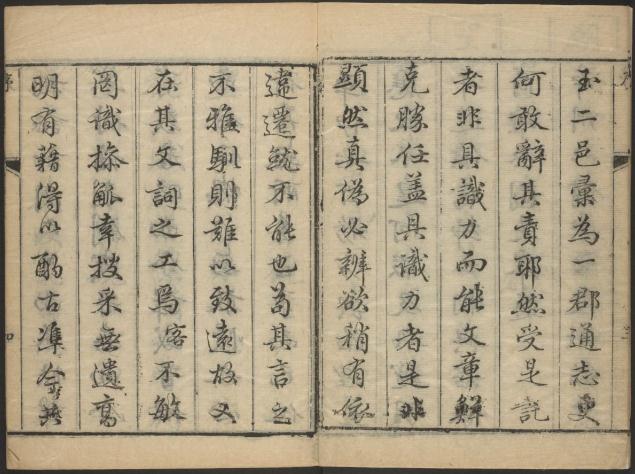 玉二邑彙為一郡通志叟
何敢辭其責耶然受是託
者非具識力而能文章鮮
克勝任盖具識力者是非
顯然真偽必辨欲稍有依
違遷就不能也苟其言之
不雅馴則難以致遠故又
在其文詞之工焉客不敏
罔識操觚幸搜采無遺寫
明有籍得以酌古準今
序
四